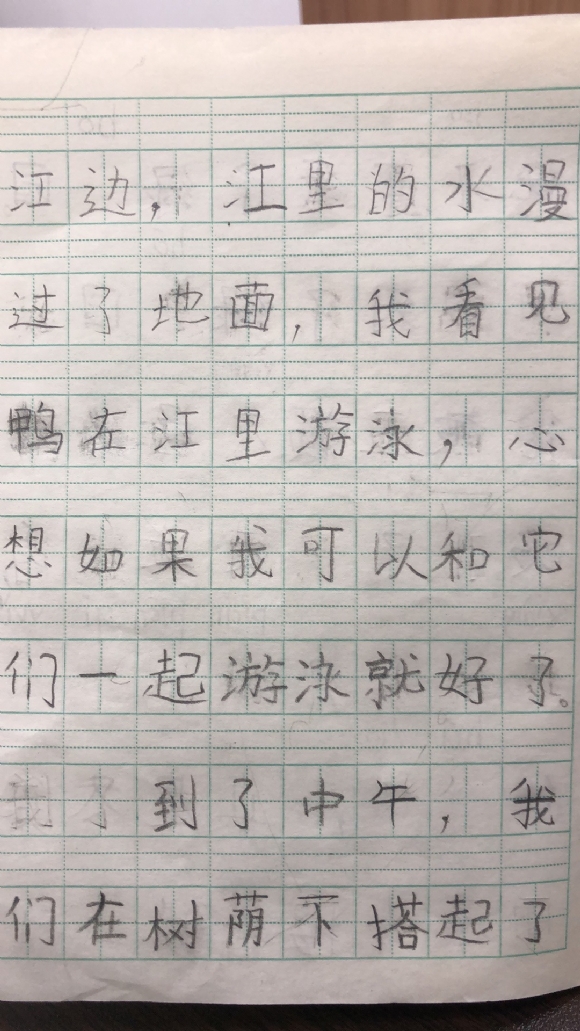 江边，江里的水漫
过了地面，我看见
鸭在江里游泳，心
想如果我可以和它
们一起游泳就好了。
到了中午，我
们在树荫下搭起了